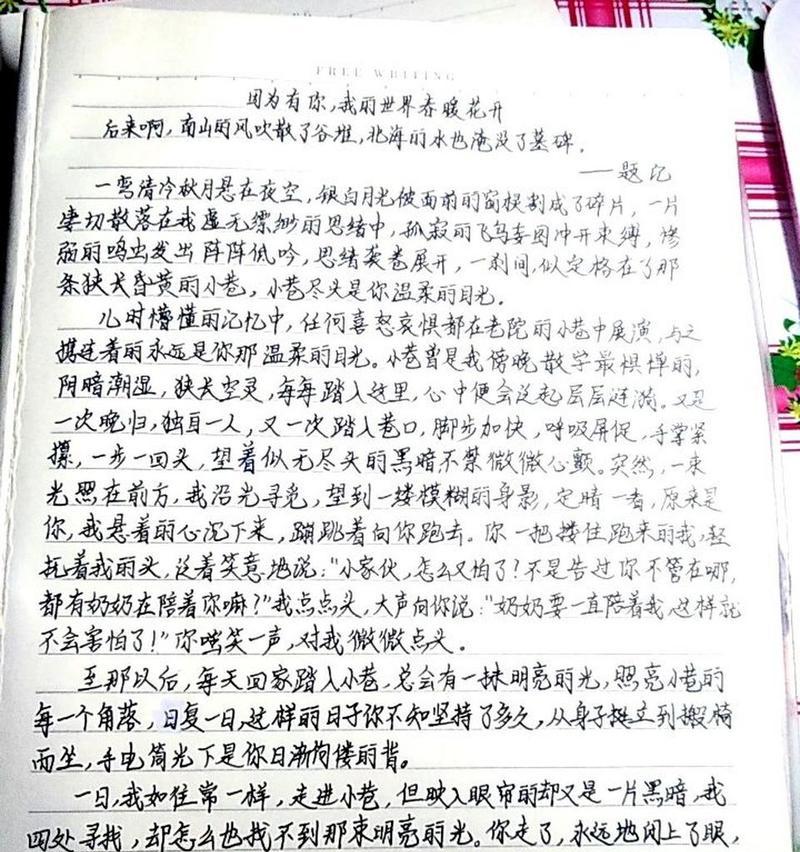 FREE WRITING
因为有你，我的世界春暖花开
后来啊，南山的风吹散了谷堆，北海的水也淹没了墓碑。
——题记
一弯清冷秋月悬在夜空，银白月光被面前的窗棂割成了碎片，一片
凄切散落在我虚无缥缈的思绪中，孤寂的飞鸟妄图冲开束缚，惨
弱的鸣虫发出阵阵低吟，思绪袭卷展开，一刹间，似定格在了那
条狭长昏黄的小巷，小巷尽头是你温柔的目光。
儿时懵懂的记忆中，任何喜怒哀惧都在老院的小巷中展演，与之
携连着的永远是你那温柔的目光。小巷曾是我傍晚散学最惧惮的，
阴暗潮湿，狭长空灵，每每踏入这里，心中便会泛起层层涟漪。又是
一次晚归，独自一人，又一次踏入巷口，脚步加快，呼吸屏促，手掌紧
攥，一步一回头，望着似无尽头的黑暗不禁微微心颤。突然，一束
光照在前方，我沿光寻觅，望到一缕模糊的身影，定睛一看，原来是
你，我悬着的心沉下来，蹦跳着向你跑去。你一把搂住跑来的我，轻
抚着我的头，泛着笑意地说："小家伙，怎么又怕了？不是告过你不管在哪，
都有奶奶在陪着你嘛？"我点点头，大声向你说："奶奶要一直陪着我，这样就
不会害怕了！"你嗤笑一声，对我微微点头。
至那以后，每天回家踏入小巷，总会有一抹明亮的光，照亮小巷的
每一个角落，日复一日，这样的日子你不知坚持了多久，从身子挺立到搬椅
而坐，手电筒光下是你日渐佝偻的背。
一日，我如往常一样，走进小巷，但映入眼帘的却又是一片黑暗，我
四处寻找，却怎么也找不到那束明亮的光。你走了，永远地闭上了眼，